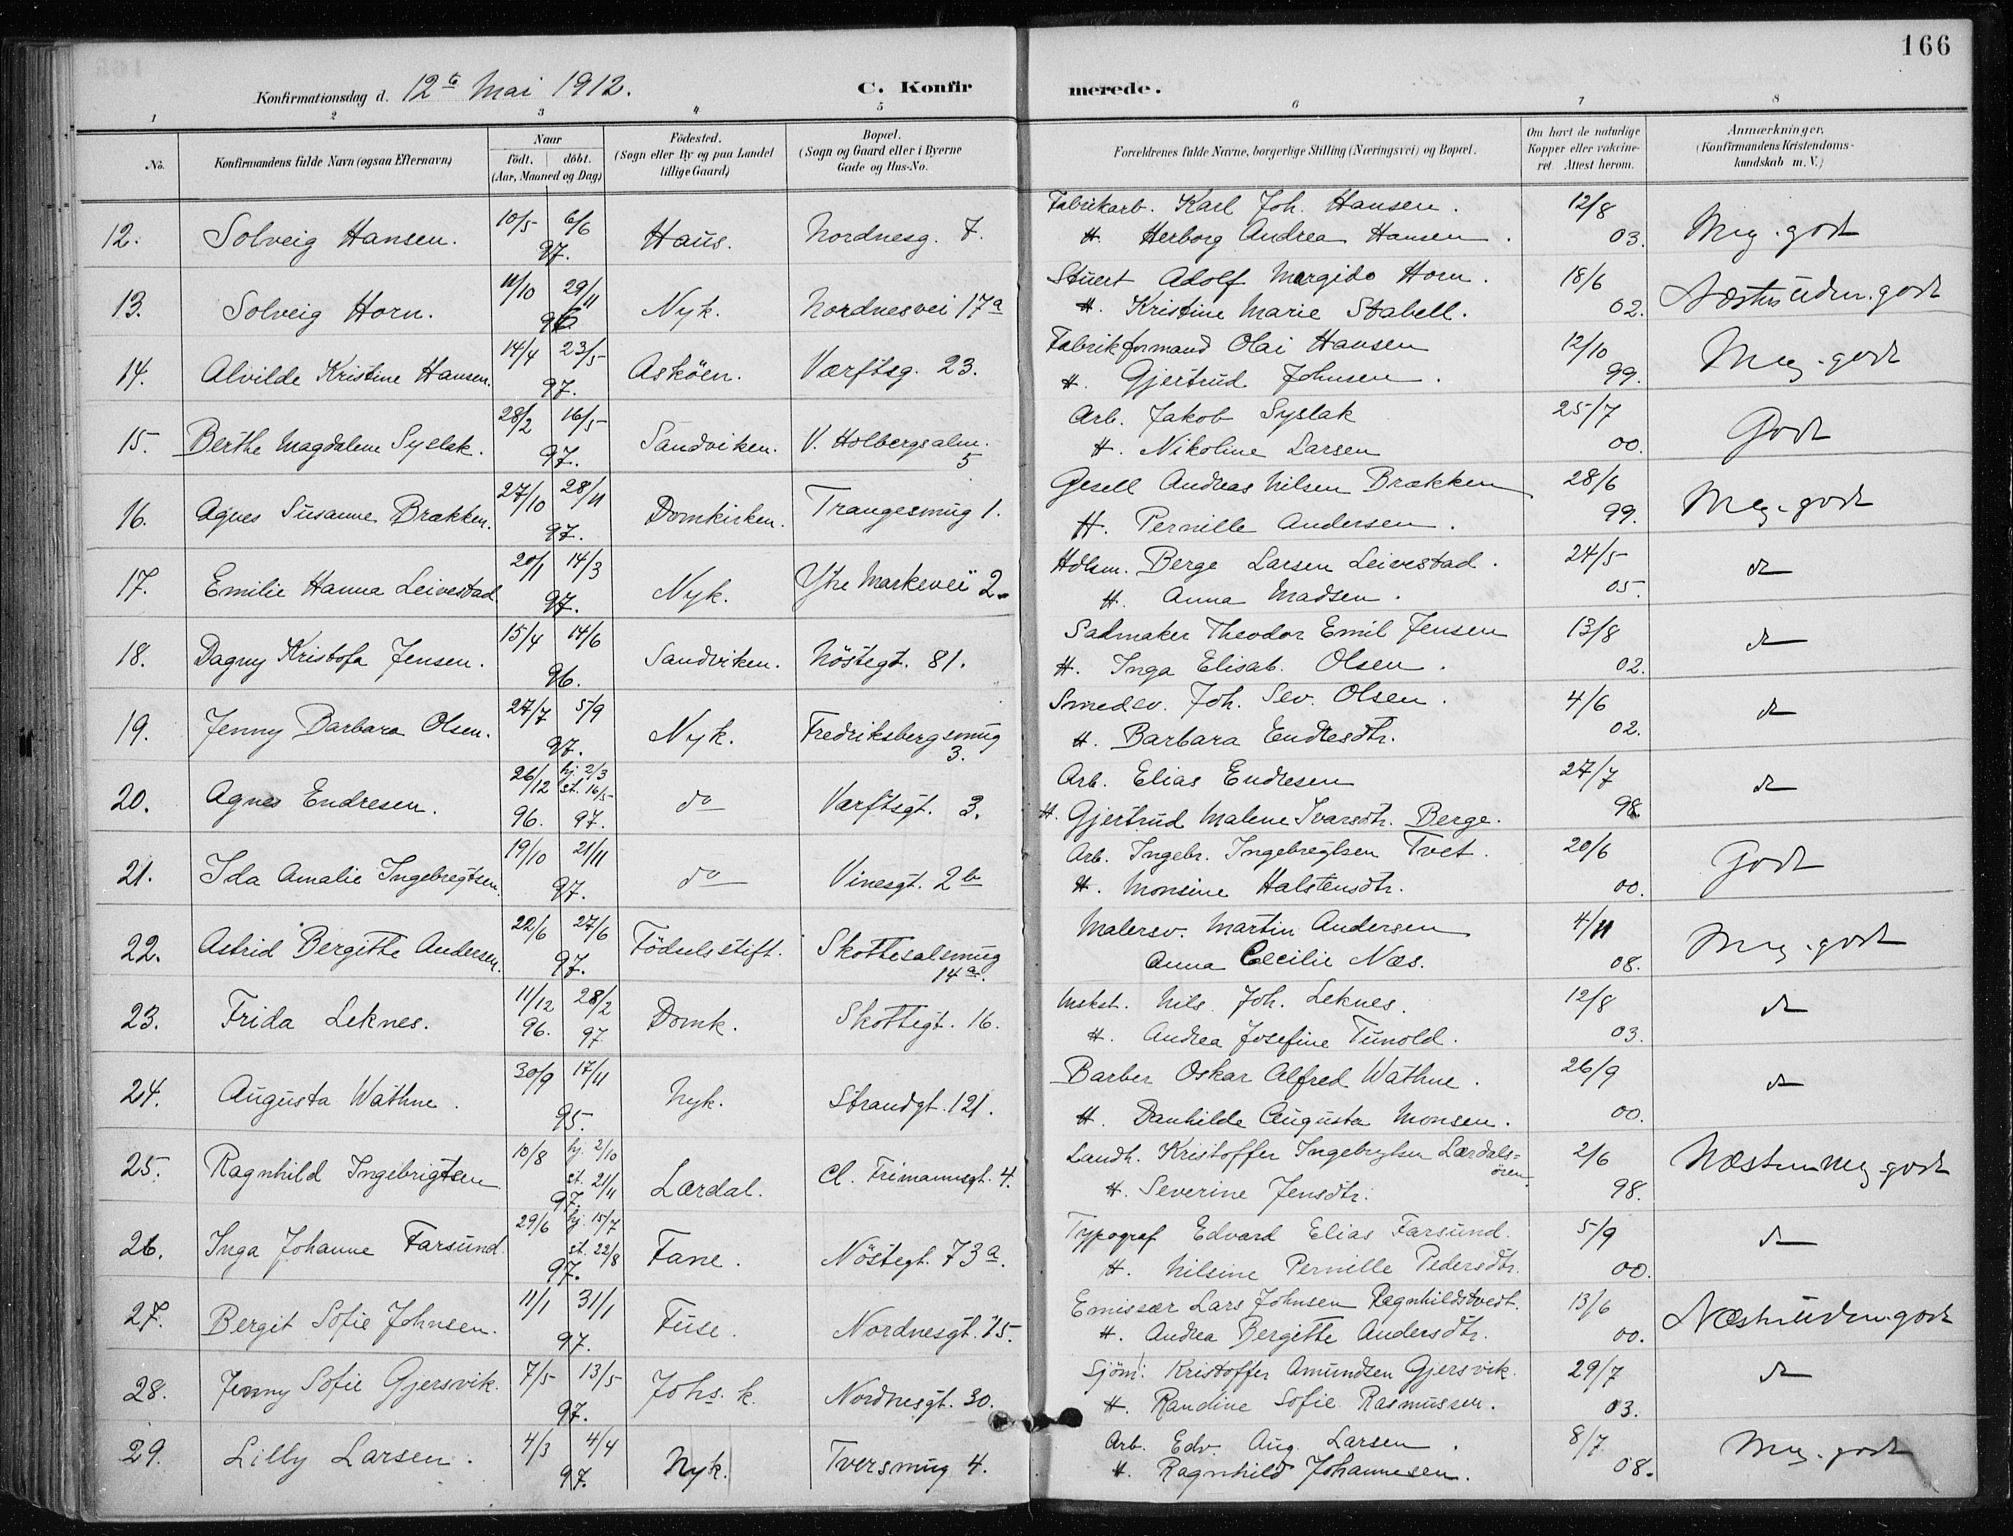 166
Konfirmationsdag d. 12te Mai 1912.
C. Konfirmerede.
1 2 3 4 5 6 7 8
No.
Konfirmandens fulde Navn (ogsaa Efternavn)
Naar
födt. döbt.
(Aar, Maaned og Dag)
Födested.
(Sogn eller By og paa Landet
tillige Gaard)
Bopæl.
(Sogn og Gaard eller i Byerne
Gade og Hus-No.
Forældrenes fulde Navne, borgerlige Stilling (Næringsvei) og Bopæl.
Om havt de naturlige
Kopper eller vakcine-
ret. Attest herom.
Anmærkninger.
(Konfirmandens Kristendoms-
kundskab m. V.)
12. Solveig Hansen. 10/5 6/6 97. Haus. Nordnesg. 7. Fabrikarb. Karl Joh. Hansen. 12/8 03. Meg. godt
H. Herborg Andrea Hansen.
13. Solveig Horn. 11/10 29/11 96 Nyk. Nordnesvei 17a Stuert Adolf Margido Horn. 18/6 02. Næsten uden. godt
H. Kristine Marie Stabell.
14. Alvilde Kristine Hansen. 14/4 23/5 97. Asköen. Værftsg. 23. Fabrikformand Olai Hansen 12/10 99. Meg. godt
H. Gjertrud Johnsen.
15. Berthe Magdalene Syslak. 28/2 16/5 97. Sandviken. V. Holbergsalm. 5 Arb. Jakob Syslak 25/7 00. Godt
H. Nikoline Larsen
16. Agnes Susanne Brækken. 27/10 28/11 97. Domkirken. Trangesmug 1. Gesell Andreas Nilsen Brækken 28/6 99. Meg. godt
H. Pernille Andersen.
17. Emilie Hanna Leivestad 20/1 14/3 97. Nyk. Ytre Markevei 2. Hdlsm. Berge Larsen Leivestad. 24/5 05. do
H. Anna Madsen.
18. Dagny Kristofa Jensen. 15/4 14/6 96. Sandviken. Nöstegt. 81. Sadmaker Theodor Emil Jensen 13/8 02. do
H. Inga Elisab. Olsen.
19. Jenny Barbara Olsen. 27/7 5/9 97. Nyk. Fredriksbergsmug 3. Smedsv. Joh. Sev. Olsen. 4/6 02. do
H. Barbara Endresdtr.
20. Agnes Endresen. 26/12 96. hj. 2/3 st. 16/5 97. do Værftsgt. 3. Arb. Elias Endresen 27/7 98 do
H. Gjertrud Malene Ivarsdtr. Berge.
21. Ida Amalie Ingebregtsen. 19/10 21/11 97. do Vinesgt. 2b Arb. Ingebr. Ingebregtsen Tvet. 20/6 00. Godt
H. Monsine Halstensdtr.
22. Astrid Bergitte Andersen. 22/6 27/6 97. Födselsstift. Skottesalsmug 14a. Malersv. Martin Andersen 4/11 08. Meg. godt
Anna Cecilie Næs.
23. Frida Leknes. 11/12 96. 28/2 97 Domk. Skottegt. 16. Mskst. Nils Joh. Leknes. 12/8 03. do
H. Andrea Josefine Tunold.
24. Augusta Wathne. 30/9 17/11 95. Nyk. Strandgt. 121. Barber Oskar Alfred Wathne. 26/9 00. do
H. Danhilde Augusta Monsen.
25. Ragnhild Ingebrigtsen 10/8 hj. 2/10 st. 21/11 97. Lærdal. Cl. Frimannsgt. 4. Landh. Kristoffer Ingebrigtsen Lærdals-ören 2/6 98. Næsten meg. godt
H. Severine Jensdtr.
26. Inga Johanne Farsund. 29/6 hj. 15/7 st. 22/8 97. Fane. Nöstegt. 73a. Typograf Edvard Elias Farsund. 5/9 00. do
H. Nilsine Pernille Pedersdtr.
27. Bergit Sofie Johnsen. 11/1 31/1 97. Fuse. Nordnesgt. 15. Emissær Lars Johnsen Ragnhildstvedt. 13/6 00. Næsten uden. godt
H. Andrea Bergitte Andersdtr.
28. Jenny Sofie Gjersvik. 7/5 13/5 97. Johs. k. Nordnesgt. 30. Sjöm. Kristoffer Amundsen Gjersvik. 29/7 03. do
H. Randine Sofie Rasmussen.
29. Lilly Larsen. 4/3 4/4 97. Nyk. Tversmug 4. Arb. Edv. Aug. Larsen. 8/7 08. Meg. godt
H. Ragnhild Johannesen.